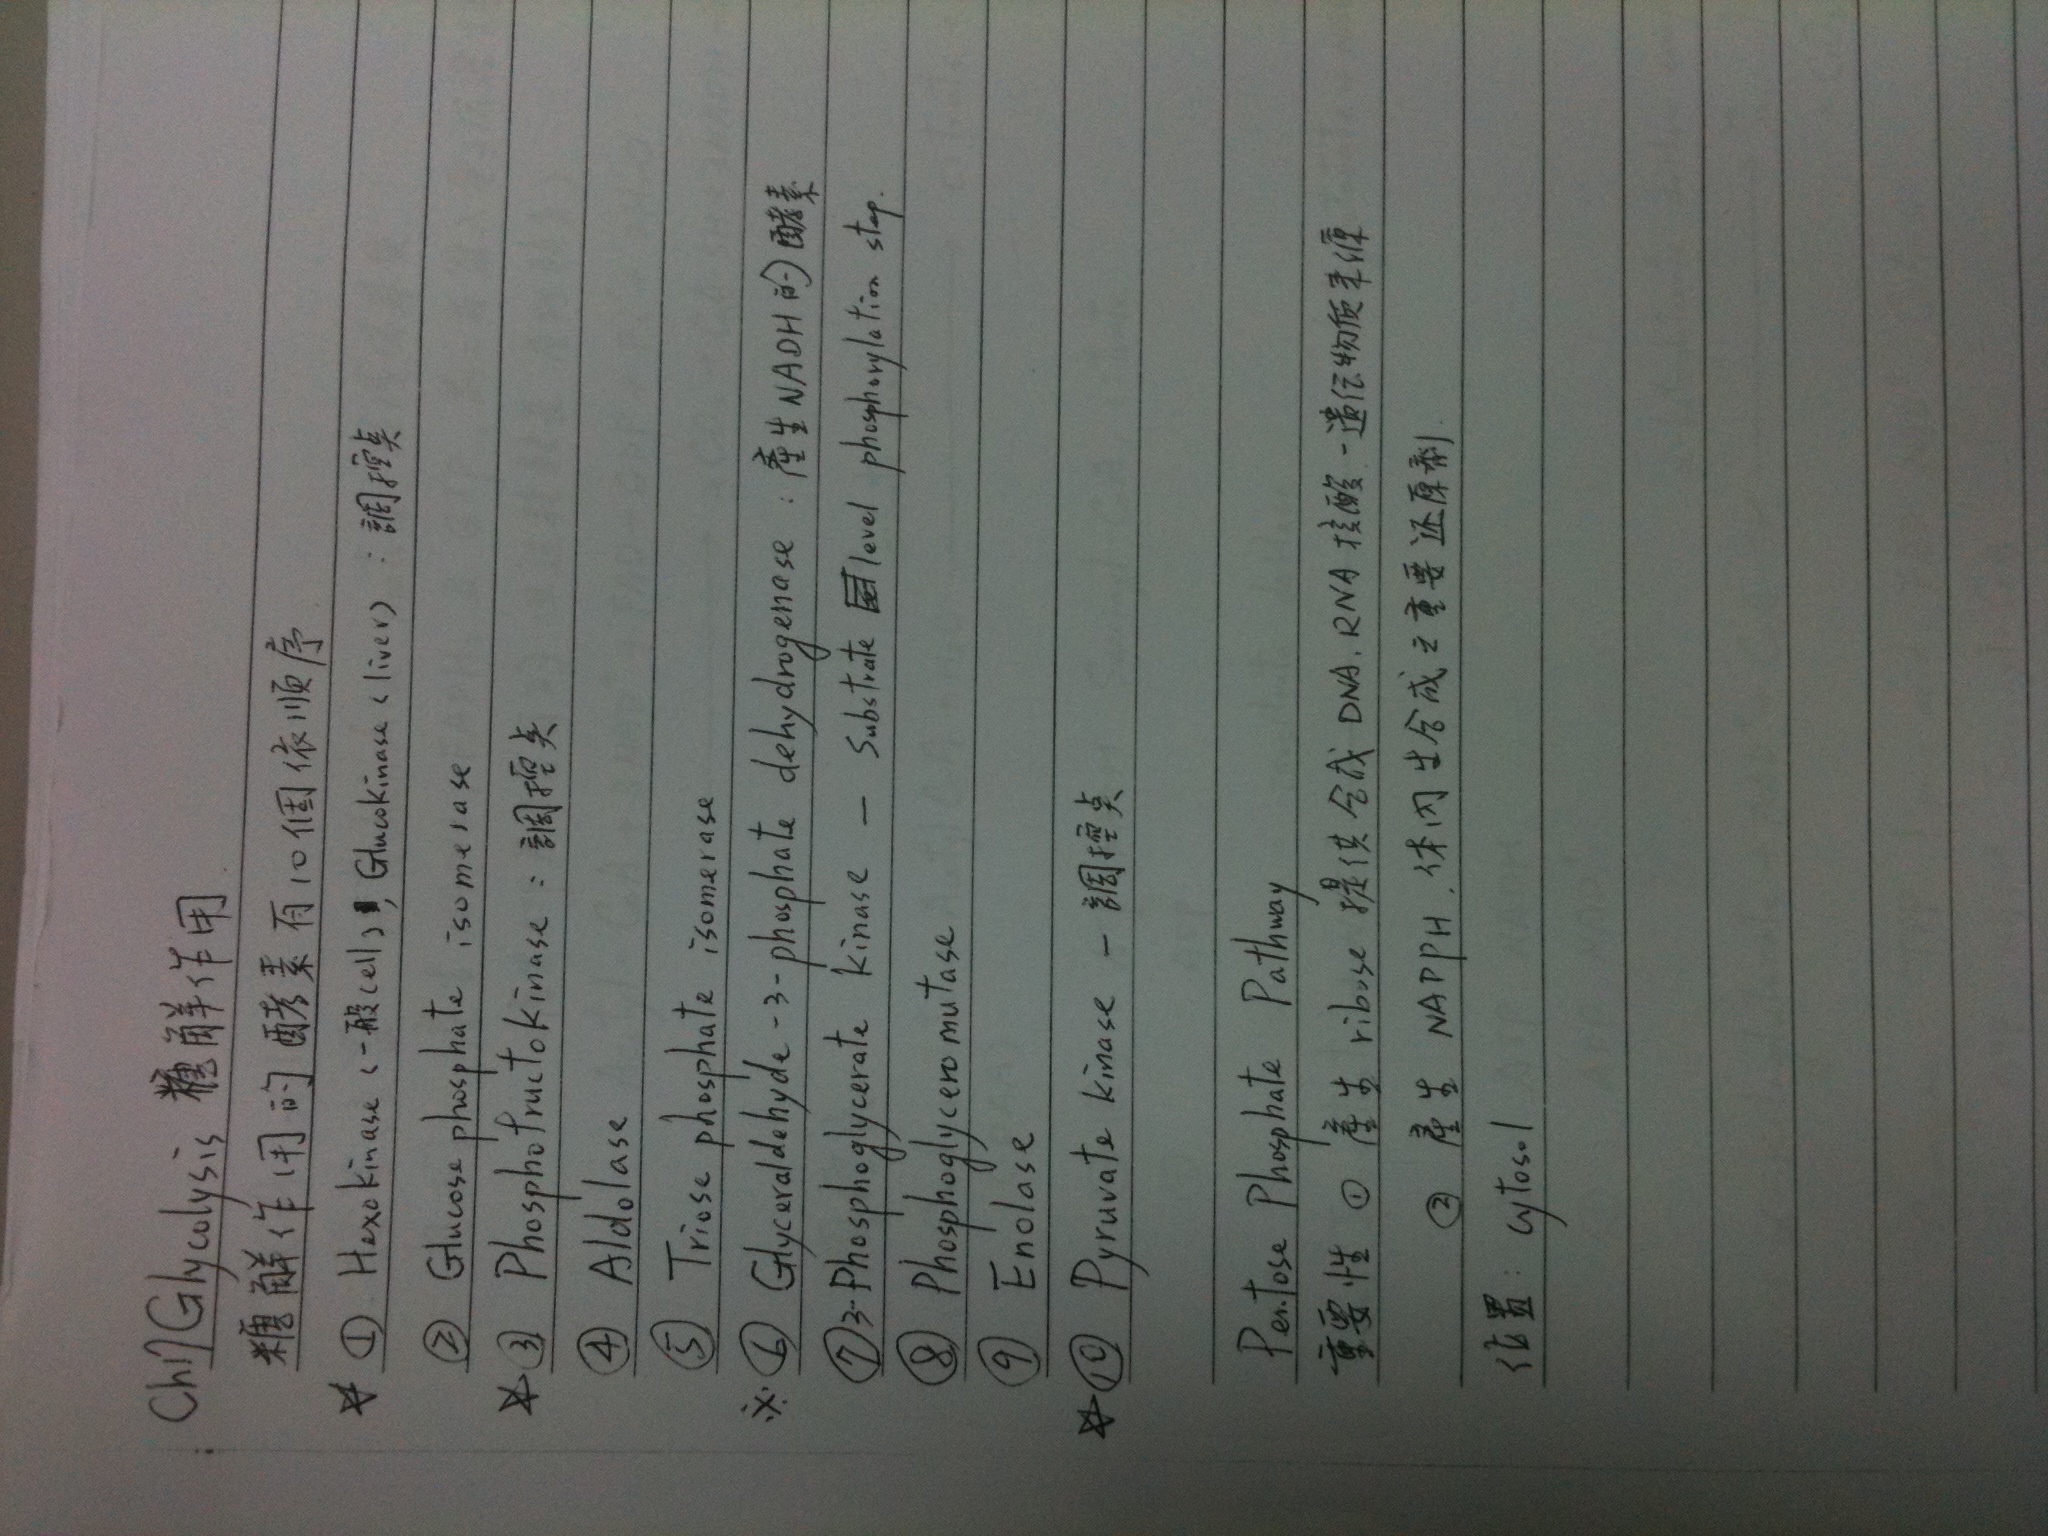 Ch17 Glycolysis 糖解作用
糖解作用的酵素有10個依順序
☆ ① Hexokinase (一般cell), Glucokinase (liver) : 調控点
② Glucose phosphate isomerase
☆ ③ Phosphofructokinase : 調控点
④ Aldolase
⑤ Triose phosphate isomerase
※ ⑥ Glyceraldehyde-3-phosphate dehydrogenase : 產生NADH的酵素
⑦ 3-Phosphoglycerate kinase — Substrate level phosphorylation step.
⑧ Phosphoglyceromutase
⑨ Enolase
☆ ⑩ Pyruvate kinase — 調控点
Pentose Phosphate Pathway
重要性 ① 產生 ribose 提供合成 DNA. RNA 核酸 - 遺伝物質來源
② 產生 NAPPH. 体内生合成之重要还原劑.
位置 : cytosol